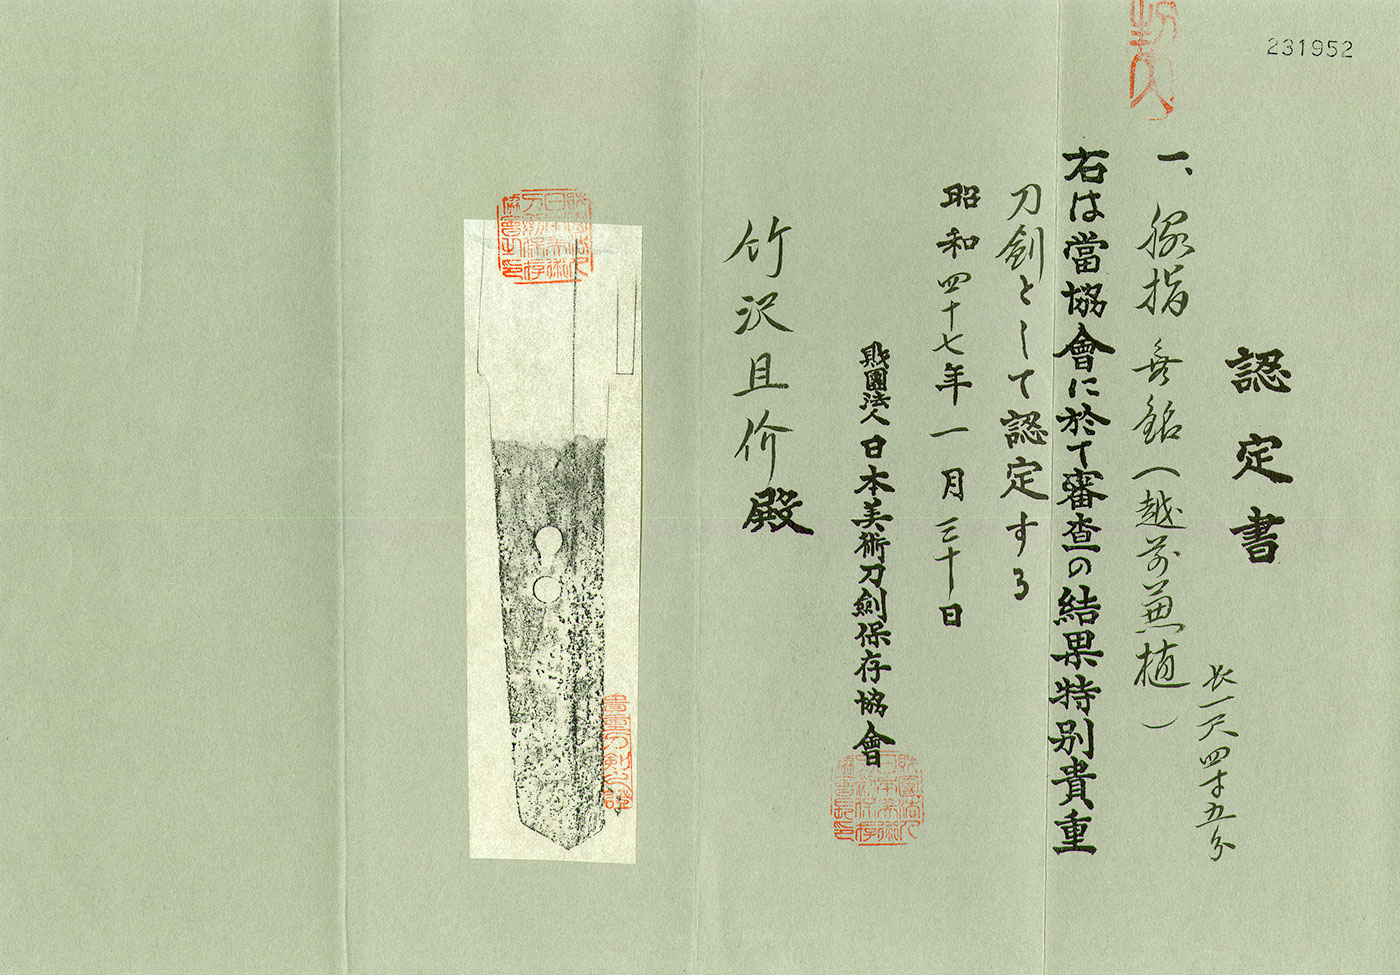 231952
認定書
一、脇指 無銘(越前兼植)
長一尺四寸五分
右は當協會に於て審査の結果特別貴重
刀劍として認定する
昭和四十七年一月三十日
財團法人日本美術刀劍保存協會
竹沢且价殿
財團法人日本美術刀劍保存協會長印
財團法人日本美術刀劍保存協會之印
貴重刀剣之證